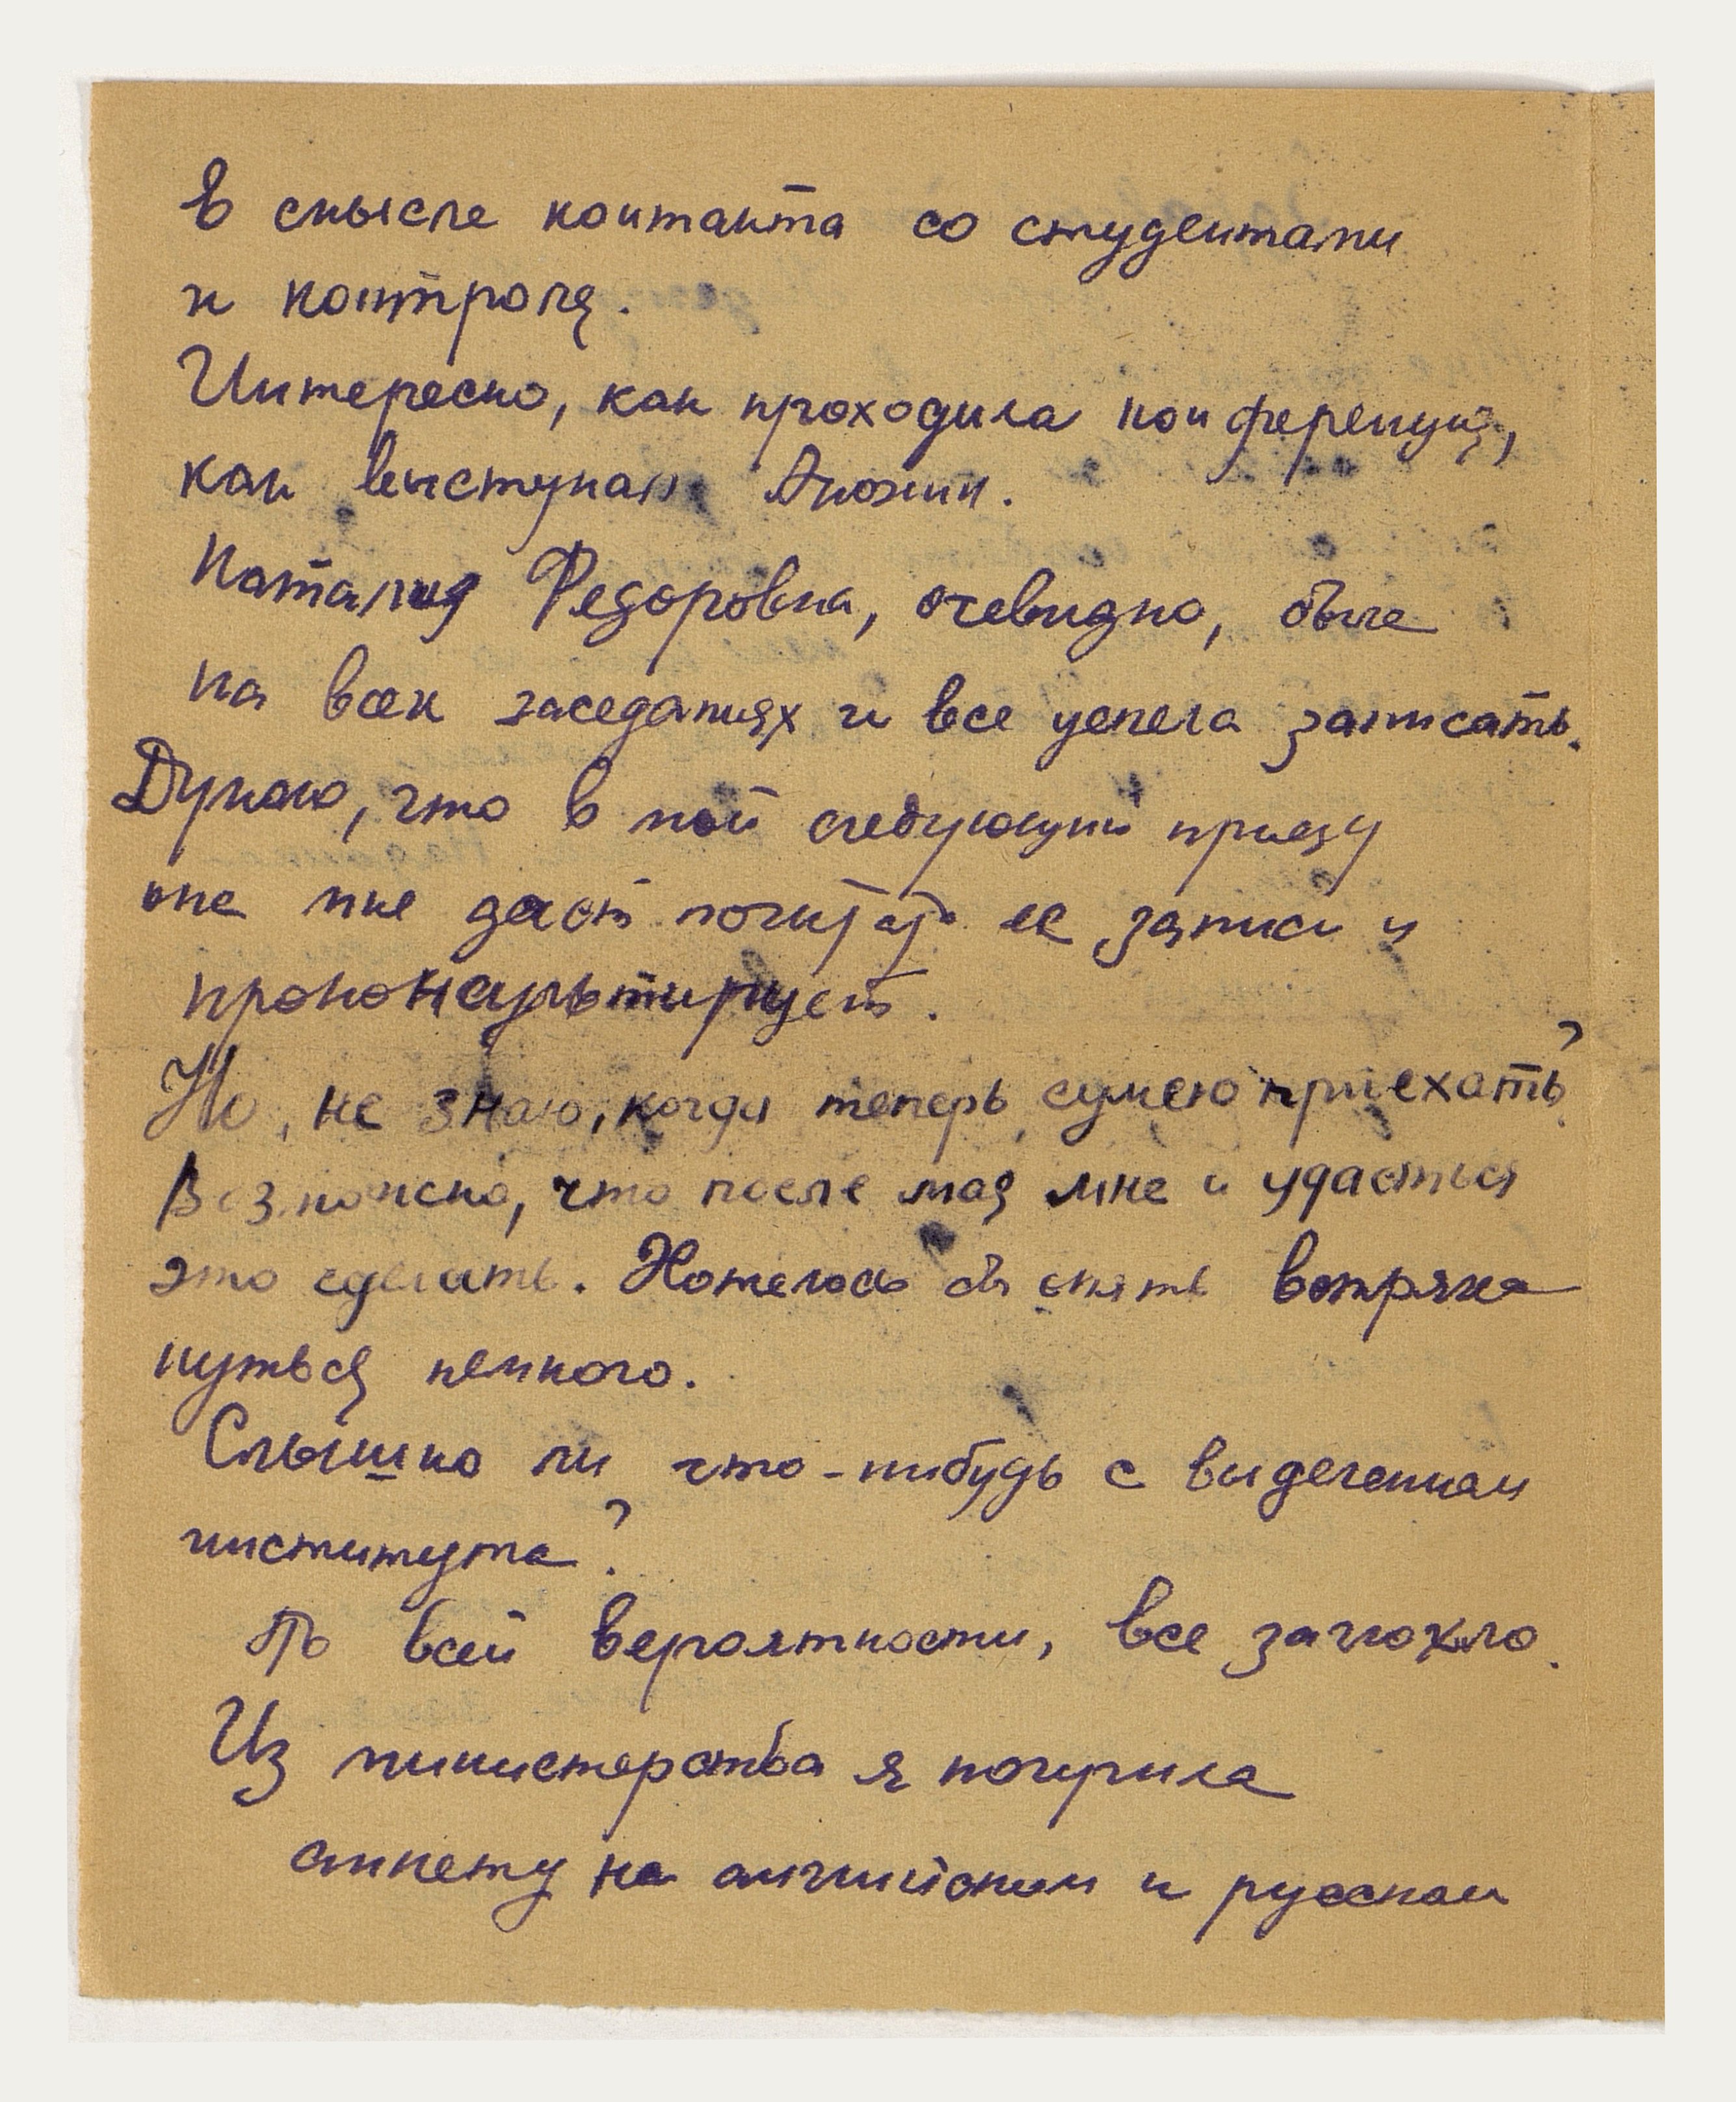 в смысле контакта со студентами
и контроля.
Интересно, как проходила конференция,
как выступал Анохин.
Наталия Федоровна, очевидно, была
на всех заседаниях и все успела записать.
Думаю, что в мой следующий приезд
она мне даст почитать ее записи и
проконсультирует.
Но, не знаю, когда теперь сумею приехать?
Возможно, что после мая мне и удастся
это сделать. Хотелось бы опять встряхнуться
нуться немного.
Слышно ли что-нибудь с выделением
института?
По всей вероятности, все заглохло.
Из министерства я получила
анкету на английском и русском